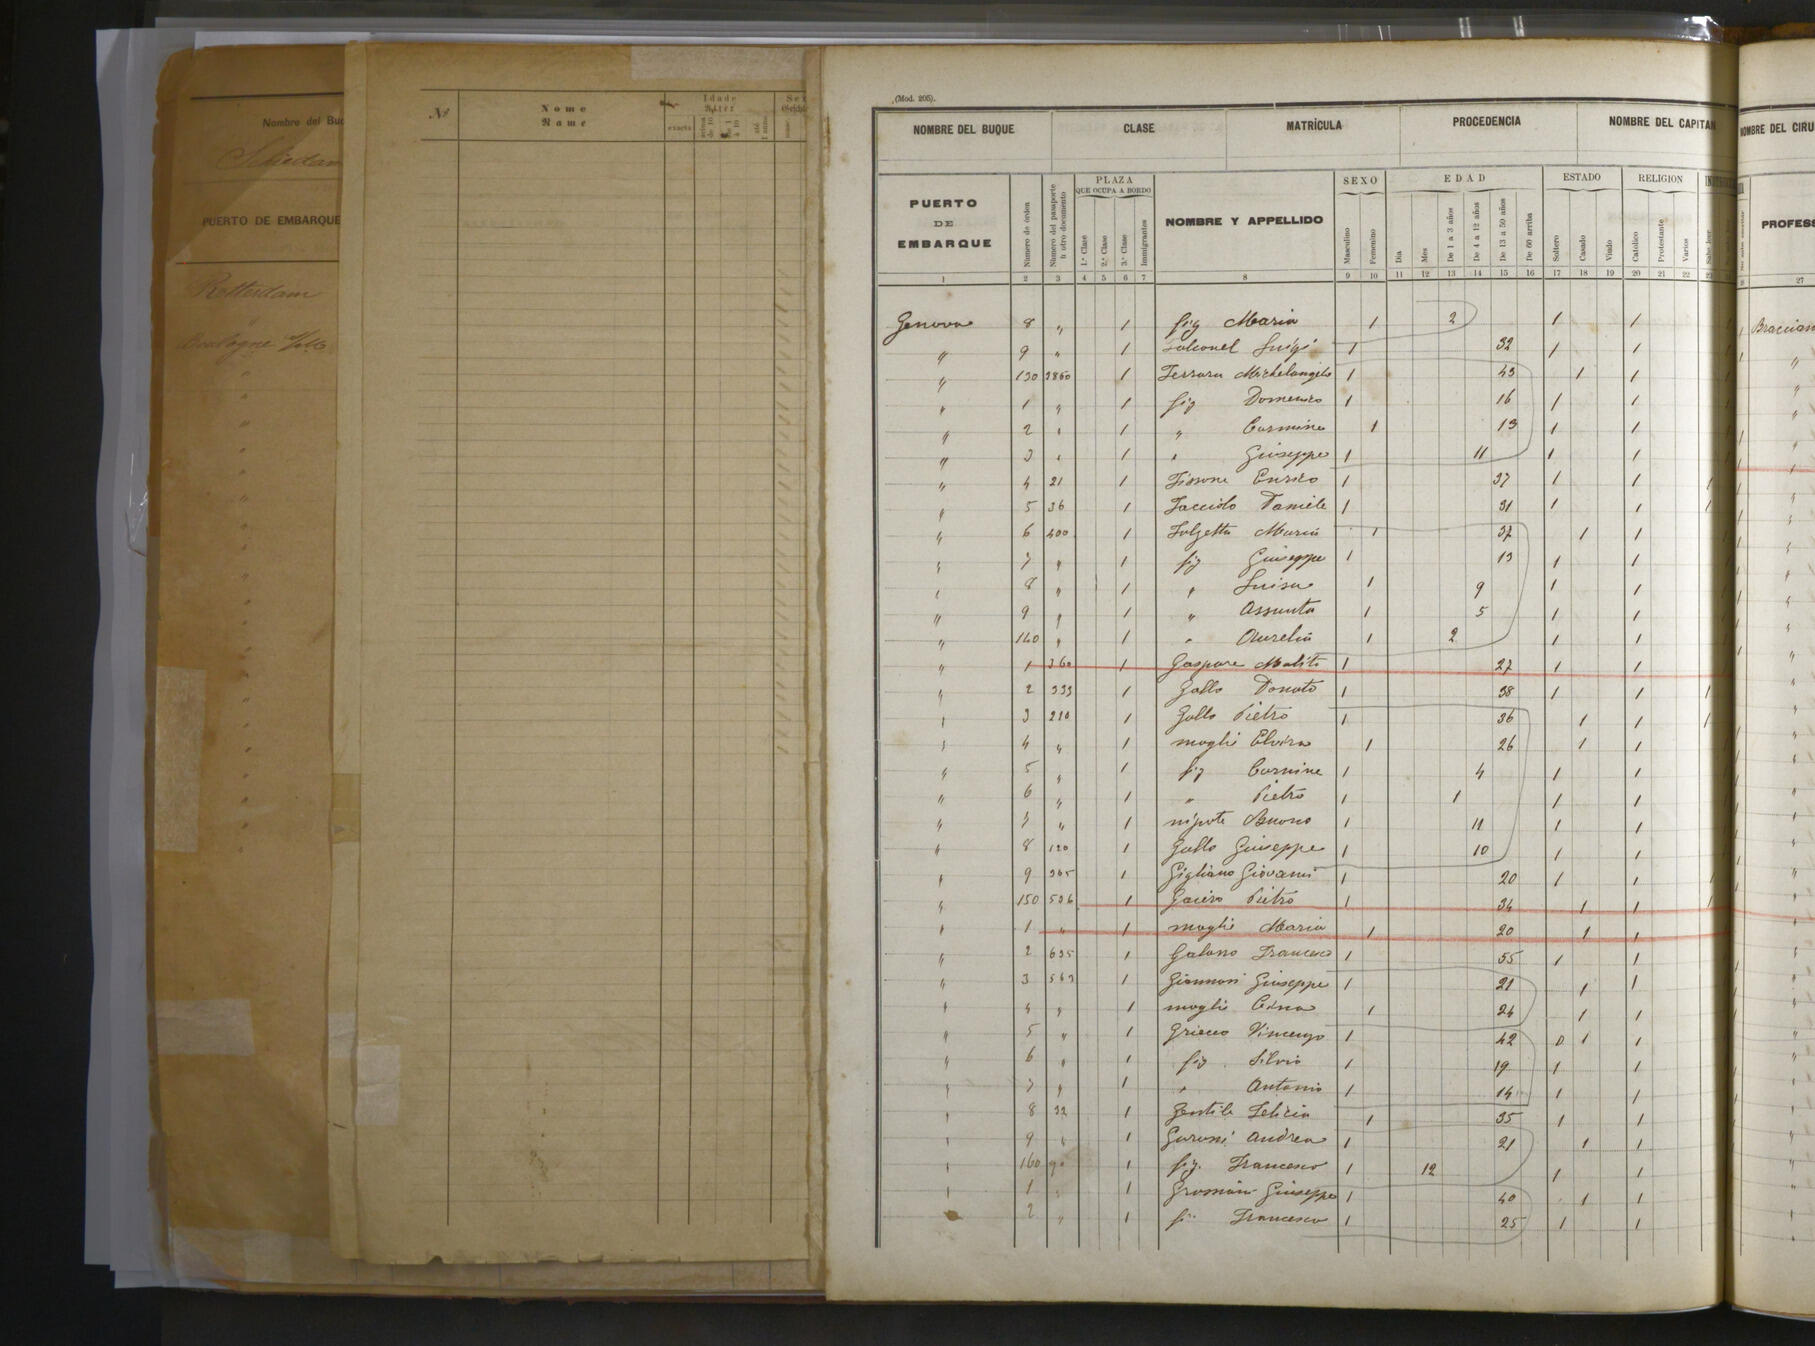 Nombre del Buq
Schiedam
PUERTO DE EMBARQUE
Rotterdam
Boulogne
Nº Nome Name Idade Alter exacta
(Mod. 205).
NOMBRE DEL BUQUE CLASE MATRÍCULA PROCEDENCIA NOMBRE DEL CAPITAN
NOMBRE DEL CIRU
PUERTO DE EMBARQUE Número de órden Número del pasaporte ú otro documento PLAZA QUE OCUPA A BORDO 1.ª Clase 2.ª Clase 3.ª Clase Inmigrantes NOMBRE Y APELLIDO SEXO Masculino Femenino EDAD Dia Mes De 1 a 3 años De 4 a 12 años De 13 a 50 años De 60 arriba ESTADO Soltero Casado Viudo RELIGION Católico Protestante Varios Sabe leer PROFES
1 2 3 4 5 6 7 8 9 10 11 12 13 14 15 16 17 18 19 20 21 22 23 27
Genova 8 " 1 fig Maria 1 2 1 1 Braccian
" 9 " 1 Luigi 1 32 1 1
" 130 3860 1 Ferrara Michelangelo 1 43 1 1
" 1 " 1 fig Domenico 1 16 1 1
" 2 " 1 " Carmine 1 13 1 1
" 3 " 1 " Giuseppe 1 11 1 1
" 4 21 1 Fissone Enrico 1 37 1 1 1
" 5 36 1 Facciolo Daniele 1 31 1 1 1
" 6 400 1 Falzetta Maria 1 37 1 1
" 7 " 1 fig Giuseppe 1 13 1 1
" 8 " 1 " Luisa 1 9 1 1
" 9 " 1 " Assunta 1 5 1 1
" 140 " 1 " Aurelia 1 2 1 1
" 1 360 1 Gaspare Malito 1 27 1 1
" 2 333 1 Gallo Donato 1 38 1 1 1
" 3 210 1 Gallo Pietro 1 36 1 1 1
" 4 " 1 moglie Elvira 1 26 1 1
" 5 " 1 fig Carmine 1 4 1 1
" 6 " 1 " Pietro 1 1 1 1
" 7 " 1 nipote 1 11 1 1
" 8 120 1 Gallo Giuseppe 1 10 1 1
" 9 345 1 Gigliano Giovanni 1 20 1 1 1
" 150 536 1 Gaiero Pietro 1 34 1 1 1
" 1 " 1 moglie Maria 1 20 1 1
" 2 635 1 Galano Francesco 1 55 1 1
" 3 563 1 Giannoni Giuseppe 1 21 1 1
" 4 " 1 moglie 1 24 1 1
" 5 " 1 Griecco Vincenzo 1 42 0 1 1
" 6 " 1 fig Silvio 1 19 1 1
" 7 " 1 " Antonio 1 14 1 1
" 8 32 1 Gentile Felicia 1 35 1 1
" 9 " 1 Garoni Andrea 1 21 1 1
" 160 90 1 fig. Francesco 1 12 1 1
" 1 " 1 Giuseppe 1 40 1 1
2 " 1 fi Francesco 1 25 1 1